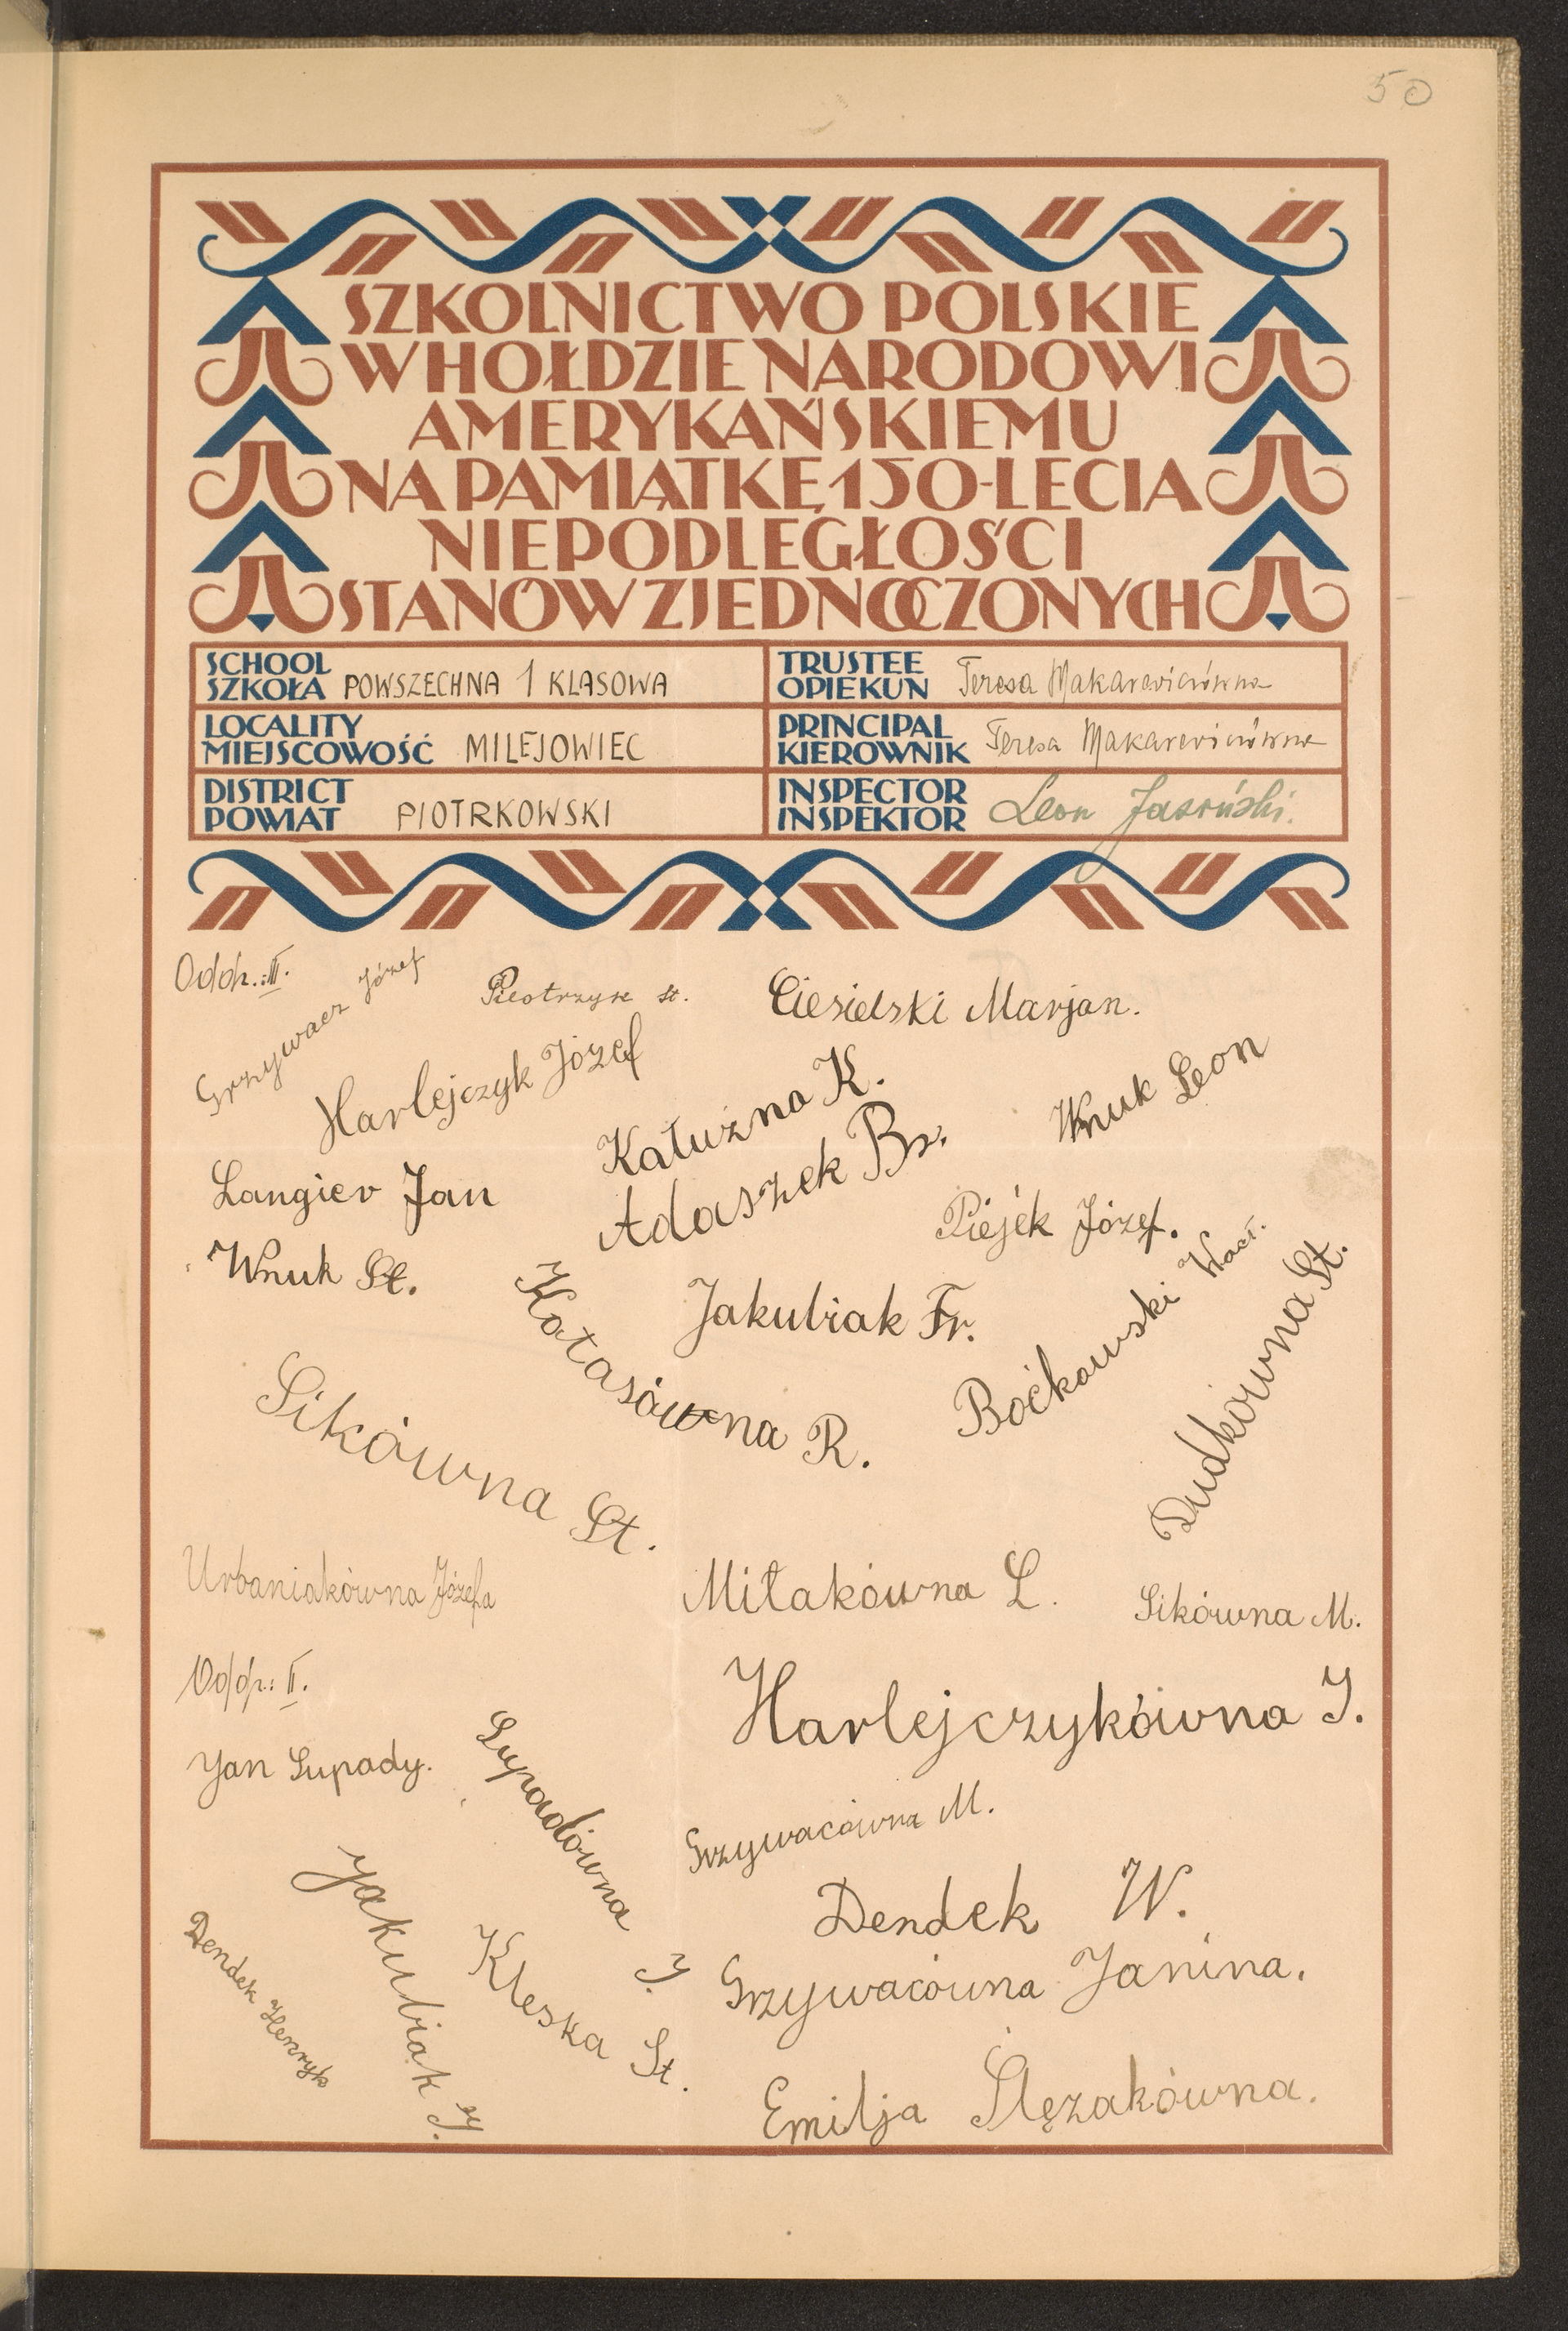 50
SZKOLNICTWO POLSKIE
W HOŁDZIE NARODOWI
AMERYKAŃSKIEMU
NA PAMIĄTKĘ 150-LECIA
NIEPODLEGŁOŚCI
STANÓW ZJEDNOCZONYCH
SCHOOL
SZKOŁA POWSZECHNA 1 KLASOWA
TRUSTEE
OPIEKUN Teresa Makarewiczówna
LOCALITY
MIEJSCOWOŚĆ MILEJOWIEC
PRINCIPAL
KIEROWNIK Teresa Makarewiczówna
DISTRICT
POWIAT PIOTRKOWSKI
INSPECTOR
INSPEKTOR Leon Jasiński.
Oddz.: III.
Grzywacz Józef
Pieotrzyk St.
Ciesielski Marjan.
Harlejczyk Józef
Katużna K.
Wnuk Leon
Langier Jan
Adaszek Br.
Piejek Józef.
Wnuk St.
Kotasówna R.
Jakubiak Fr.
Boćkowski Wacł.
Dudkówna St.
Sikówna St.
Urbaniakówna Józefa
Miłakówna L.
Sikówna M.
Odd.: II.
Harlejczykówna J.
Jan Lupady.
Lupadówna J.
Grzywacówna M.
Jakubiak J.
Dendek W.
Dendek Henryk
Kleska St.
Grzywacówna Janina.
Emilja Ślęzakówna.